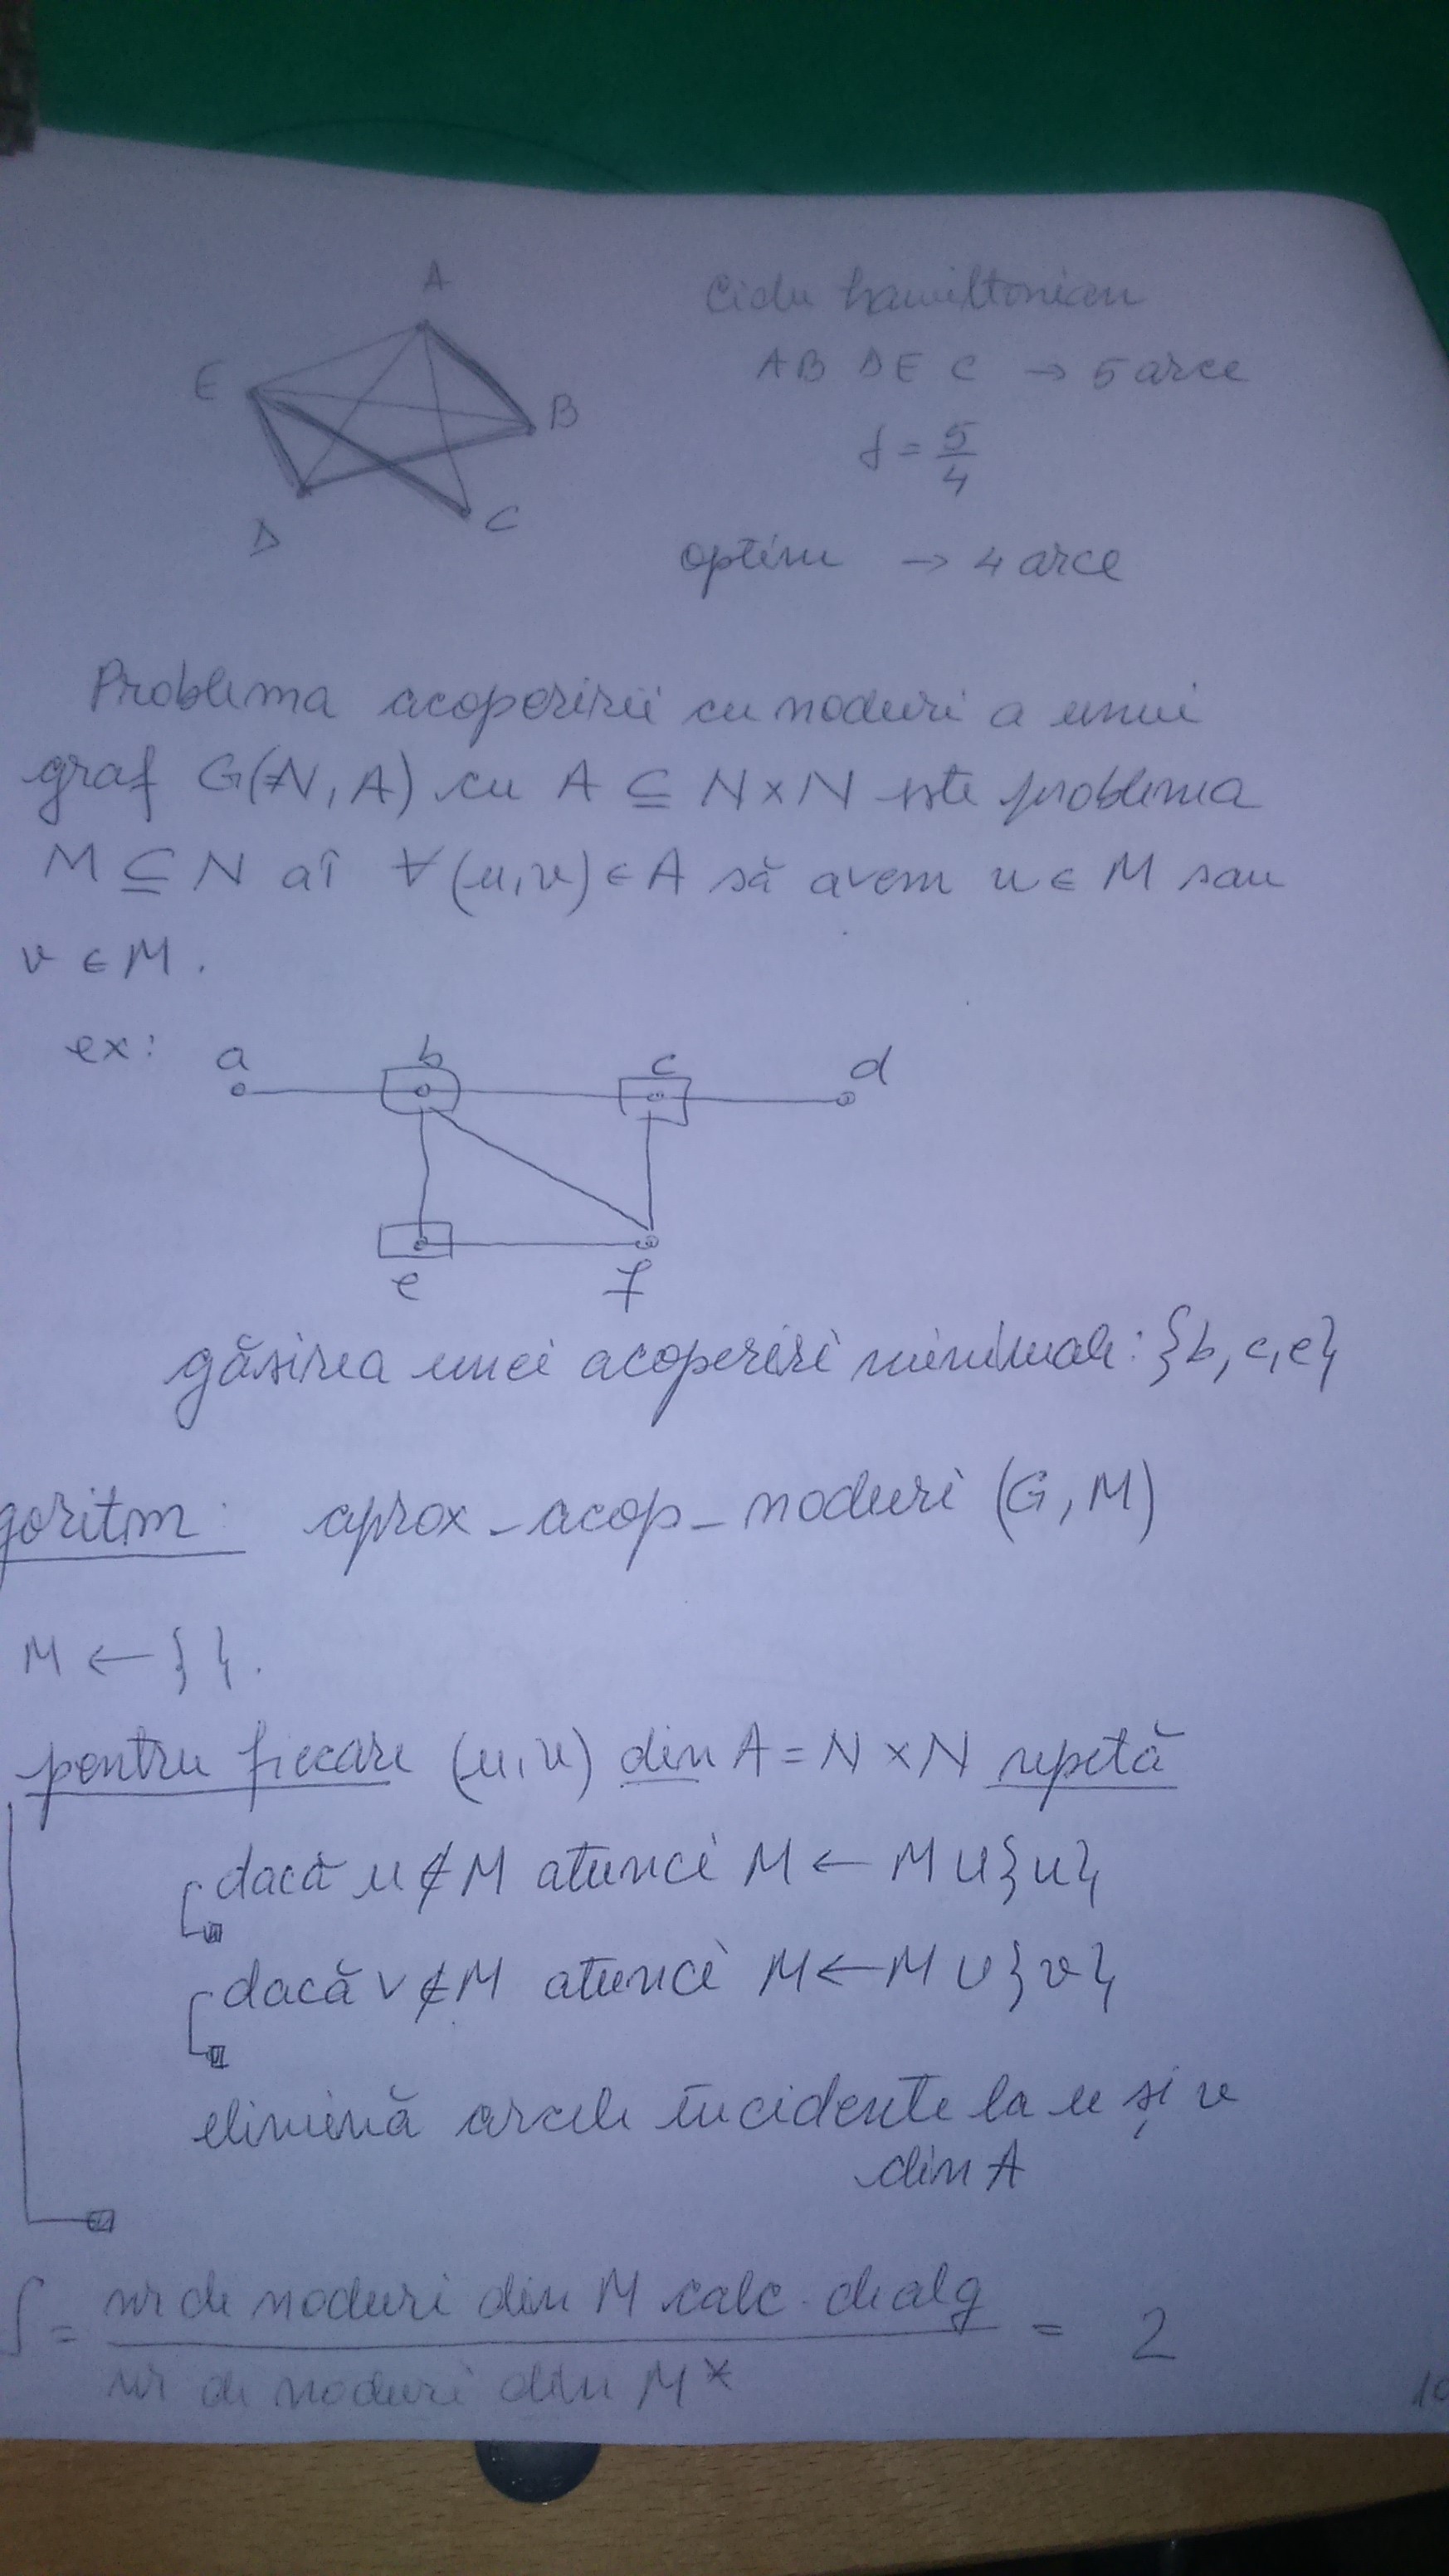 A
E
B
D
C
Ciclu hamiltonian
AB DE C → 5 arce
f = 5/4
optim → 4 arce
Problema acoperirii cu noduri a unui
graf G(N, A) cu A ⊆ N×N este problema
M ⊆ N aî ∀(u,v) ∈ A să avem u ∈ M sau
v ∈ M.
ex:
a b c d
e f
găsirea unei acoperiri minimale: {b, c, e}
goritm: aprox_acop_noduri (G, M)
M ← { }.
pentru fiecare (u, v) din A = N × N repetă
dacă u ∉ M atunci M ← M ∪ {u}
dacă v ∉ M atunci M ← M ∪ {v}
elimină arcele incidente la u și v
din A
f = nr de noduri din M calc. de alg / nr de noduri din M* = 2
10